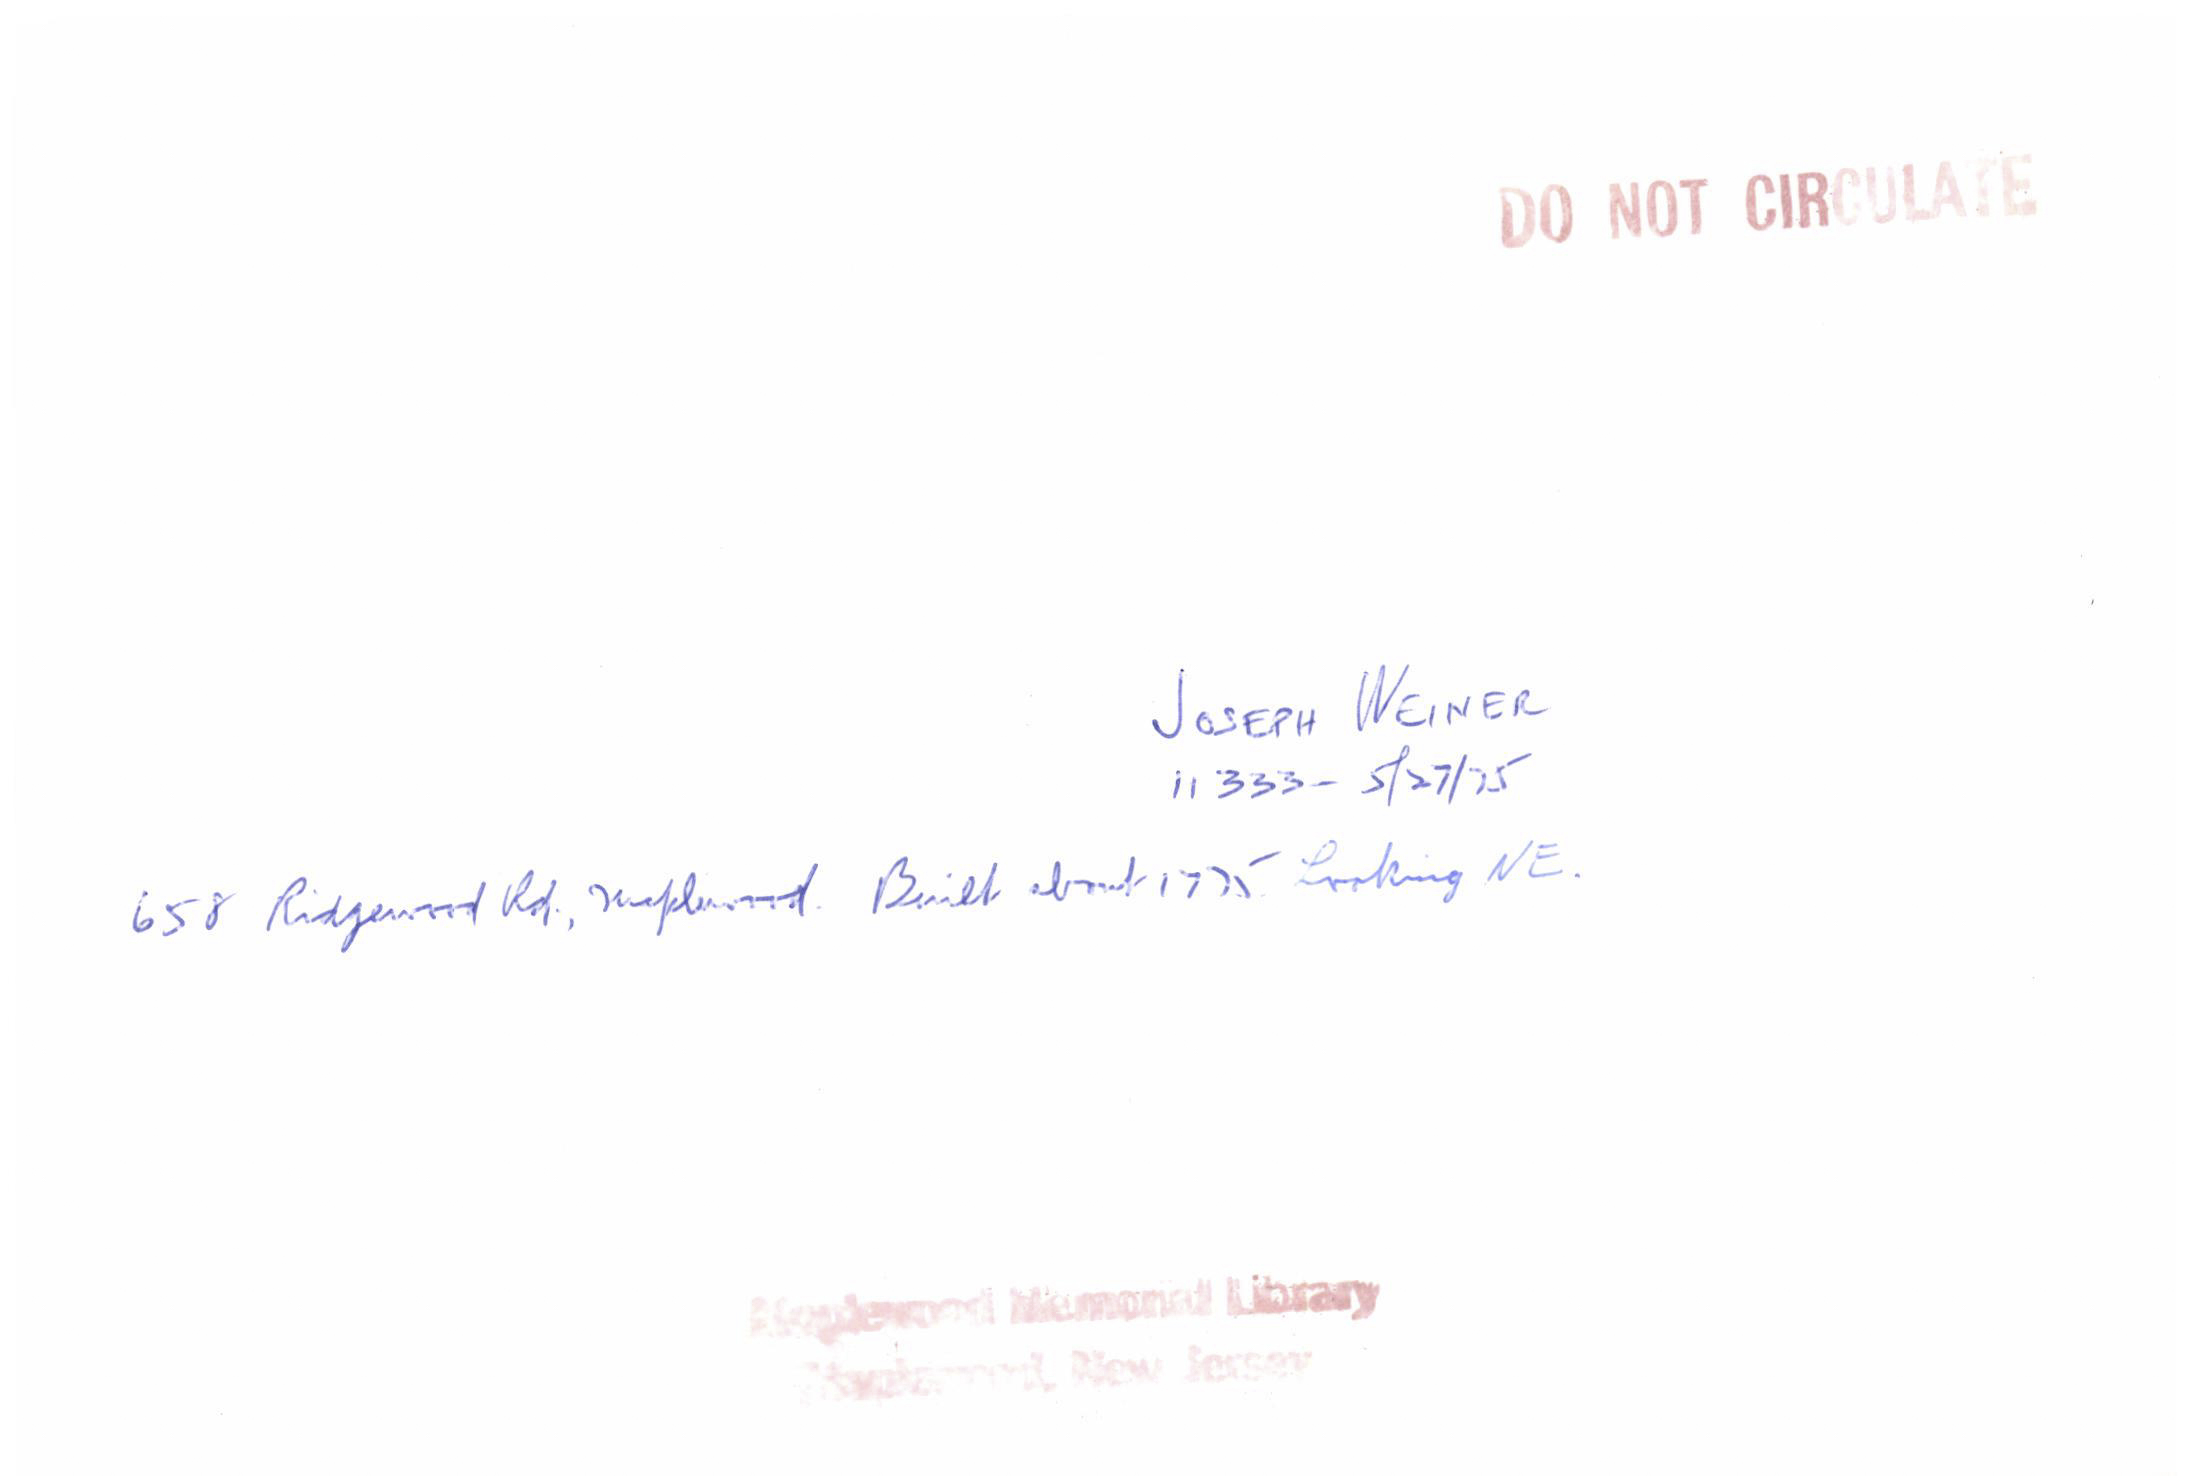 DO NOT CIRCULATE
JOSEPH WEINER
11333- 5/27/75
658 Ridgewood Rd., Maplewood. Built about 1775. Looking NE.
Maplewood Memorial Library
Maplewood, New Jersey